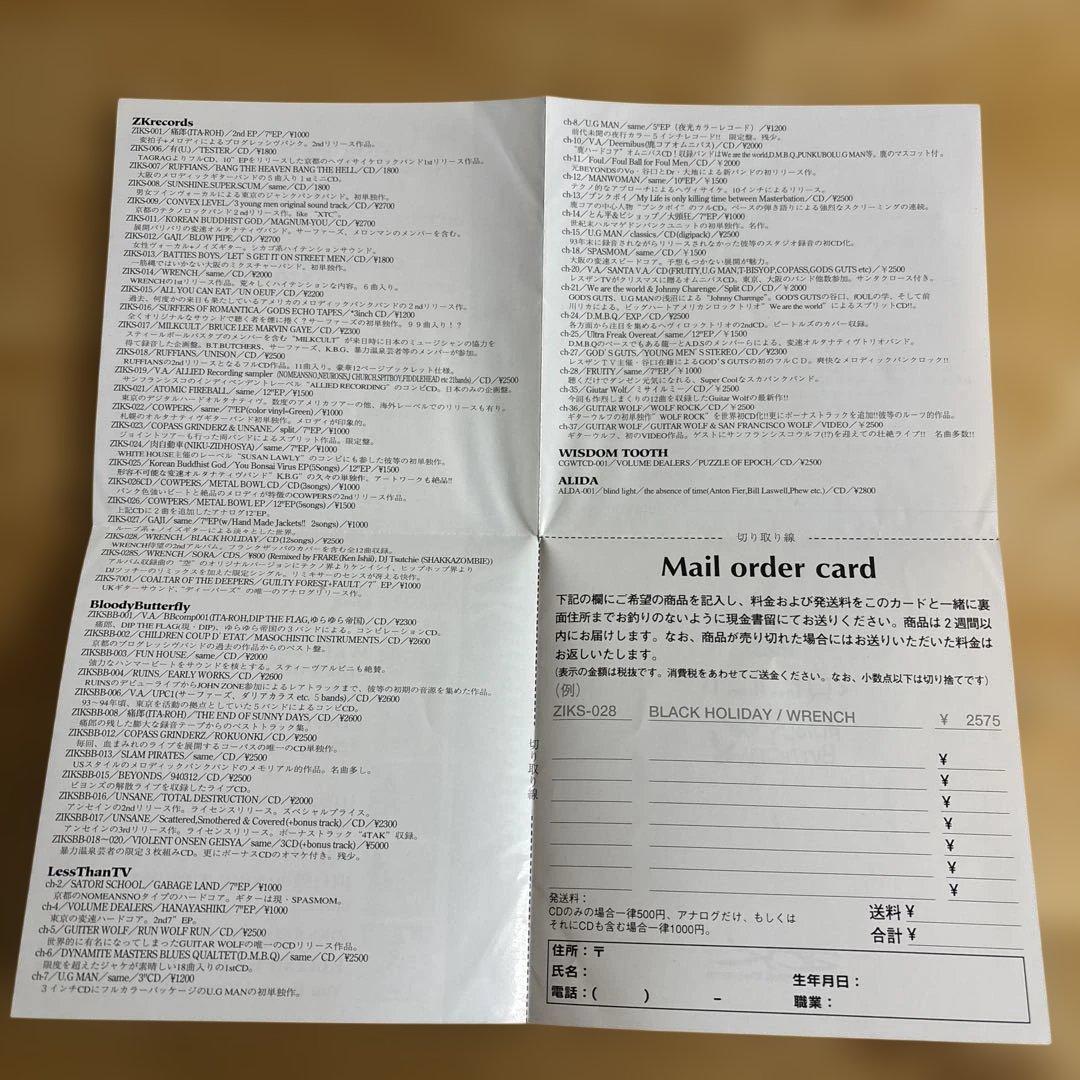 ZKrecords
ZIKS-001／痛郎(ITA-ROH)／2nd EP／7"EP／¥1000
変拍子+メロディによるプログレッシヴパンク。2ndリリース作品。
ZIKS-006／有(U.)／TESTER／CD／¥1800
TAGRAGよりフルCD、10"EPをリリースした京都のヘヴィサイケロックバンド1stリリース作品。
ZIKS-007／RUFFIANS／BANG THE HEAVEN BANG THE HELL／CD／1800
大阪のメロディックギターバンドの5曲入り1stミニCD。
ZIKS-008／SUNSHINE.SUPER.SCUM／same／CD／1800
男女ツインヴォーカルによる東京のジャンクバンド。初単独作。
ZIKS-009／CONVEX LEVEL／3 young men original sound track／CD／¥2700
京都のテクノロックバンド2ndリリース作。like "XTC"。
ZIKS-011／KOREAN BUDDHIST GOD／MAGNUM-YOU／CD／¥2700
展開バリバリの変速オルタナティヴバンド。サーファーズ、メロンマンのメンバーを含む。
ZIKS-012／GAJI／BLOW PIPE／CD／¥2700
女性ヴォーカル+ノイズギター。シカゴ系ハイテンションサウンド。
ZIKS-013／BATTIES BOYS／LET'S GET IT ON STREET MEN／CD／¥1800
一筋縄ではいかない大阪のミクスチャーバンド。初単独作。
ZIKS-014／WRENCH／same／CD／¥2000
WRENCHの1stリリース作品。荒々しくハイテンションな内容。6曲入り。
ZIKS-015／ALL YOU CAN EAT／UN OEUF／CD／¥2200
過去、何度かの来日も果たしているアメリカのメロディックパンクバンドの2ndリリース作。
ZIKS-016／SURFERS OF ROMANTICA／GODS ECHO TAPES／*3inch CD／¥1200
全くオリジナルなサウンドで聴く者を煙に捲く？サーファーズの初単独作。99曲入り！？
ZIKS-017／MILKCULT／BRUCE LEE MARVIN GAYE／CD／¥2300
スティールポールバスタブのメンバーを含む"MILKCULT"が来日時に日本のミュージシャンの協力を
得て録音した企画盤。B.T.BUTCHERS、サーファーズ、K.B.G、暴力温泉芸者等のメンバーが参加。
ZIKS-018／RUFFIANS／UNISON／CD／¥2500
RUFFIANSの2ndリリースとなるフルCD作品。11曲入り。豪華12ページブックレット仕様。
ZIKS-019／V.A／ALLIED Recording sampler（NOMEANSNO,NEUROSIS,J CHURCH,SPITBOY,FIDDLEHEAD etc 21bands)／CD／¥2500
サンフランシスコのインディペンデントレーベル "ALLIED RECORDING" のコンピCD。日本のみの企画盤。
ZIKS-021／ATOMIC FIREBALL／same／12"EP／¥1500
東京のデジタルハードオルタナティヴ。数度のアメリカツアーの他、海外レーベルでのリリースも有り。
ZIKS-022／COWPERS／same／7"EP(color vinyl=Green)／¥1000
札幌のオルタナティヴギターバンド初単独作。メロディが印象的。
ZIKS-023／COPASS GRINDERZ & UNSANE／split／7"EP／¥1000
ジョイントツアーも行った両バンドによるスプリット作品。限定盤。
ZIKS-024／肉自動車(NIKU-ZIDHOSYA)／same／7"EP／¥1000
WHITE HOUSE主催のレーベル "SUSAN LAWLY" のコンピにも参した彼等の初単独作。
ZIKS-025／Korean Buddhist God／You Bonsai Virus EP(5Songs)／12"EP／¥1500
形容不可能な変速オルタナティヴバンド" K.B.G" の久々の単独作、アートワークも絶品!!
ZIKS-026CD／COWPERS／METAL BOWL CD／CD(3songs)／¥1000
パンク色強いビートと絶品のメロディが特徴のCOWPERSの2ndリリース作品。
ZIKS-026／COWPERS／METAL BOWL EP／12"EP(5songs)／¥1500
上記CDに2曲を追加したアナログ12"EP。
ZIKS-027／GAJI／same／7"EP(w/Hand Made Jackets!! 2songs)／¥1000
ループ系+ノイズギターによる淡々とした世界。
ZIKS-028／WRENCH／BLACK HOLIDAY／CD(12songs)／¥2500
WRENCH待望の2ndアルバム。フランクザッパのカバーを含む全12曲収録。
ZIKS-028S／WRENCH／SORA／CDS／¥800 (Remixed by FRARE(Ken Ishii), DJ Tsutchie (SHAKKAZOMBIE))
アルバム収録曲の "空" のオリジナルバージョンにテクノ界よりケンイシイ、ヒップホップ界より
DJツッチーのリミックスを加えた限定シングル。リミキサーのセンスが冴える快作。
ZIKS-7001／COALTAR OF THE DEEPERS／GUILTY FOREST+FAULT／7" EP／¥1000
UKギターサウンド、"ディーパーズ" の唯一のアナログリリース作。
BloodyButterfly
ZIKSBB-001／V.A／BBcomp001(ITA-ROH,DIP THE FLAG,ゆらゆら帝国)／CD／¥2300
痛郎、DIP THE FLAG(現・DIP)、ゆらゆら帝国の3バンドによる。コンピレーションCD。
ZIKSBB-002／CHILDREN COUP D' ETAT／MASOCHISTIC INSTRUMENTS／CD／¥2600
京都のプログレッシヴバンドの過去の作品からのベスト盤。
ZIKSBB-003／FUN HOUSE／same／CD／¥2000
強力なハンマービートをサウンドを核とする。スティーヴアルビニも絶賛。
ZIKSBB-004／RUINS／EARLY WORKS／CD／¥2600
RUINSのデビューライブからJOHN ZONE参加によるレアトラックまで、彼等の初期の音源を集めた作品。
ZIKSBB-006／V.A／UPC1(サーファーズ、ダリアカラス etc. 5 bands)／CD／¥2600
93〜94年頃、東京を活動の拠点としていた5バンドによるコンピCD。
ZIKSBB-008／痛郎(ITA-ROH)／THE END OF SUNNY DAYS／CD／¥2600
痛郎の残した膨大な録音テープからのベストトラック集。
ZIKSBB-012／COPASS GRINDERZ／ROKUONKI／CD／¥2500
毎回、血まみれのライブを展開するコーパスの唯一のCD単独作。
ZIKSBB-013／SLAM PIRATES／same／CD／¥2500
USスタイルのメロディックパンクバンドのメモリアル的作品。名曲多し。
ZIKSBB-015／BEYONDS／940312／CD／¥2500
ビヨンズの解散ライブを収録したライブCD。
ZIKSBB-016／UNSANE／TOTAL DESTRUCTION／CD／¥2000
アンセインの2ndリリース作。ライセンスリリース。スペシャルプライス。
ZIKSBB-017／UNSANE／Scattered,Smothered & Covered(+bonus track)／CD／¥2300
アンセインの3rdリリース作。ライセンスリリース。ボーナストラック "4TAK" 収録。
ZIKSBB-018〜020／VIOLENT ONSEN GEISYA／same／3CD(+bonus track)／¥5000
暴力温泉芸者の限定3枚組みCD。更にボーナスCDのオマケ付き。残少。
LessThanTV
ch-2／SATORI SCHOOL／GABAGE LAND／7"EP／¥1000
京都のNOMEANSNOタイプのハードコア。ギターは現・SPASMOM。
ch-4／VOLUME DEALERS／HANAYASHIKI／7"EP／¥1000
東京の変速ハードコア。2nd7" EP。
ch-5／GUITER WOLF／RUN WOLF RUN／CD／¥2500
世界的に有名になってしまったGUITAR WOLFの唯一のCDリリース作品。
ch-6／DYNAMITE MASTERS BLUES QUALTET(D.M.B.Q)／same／CD／¥2500
限度を超えたジャケが素晴しい18曲入りの1stCD。
ch-7／U.G MAN／same／3"CD／¥1200
3インチCDにフルカラーパッケージのU.G MANの初単独作。
ch-8／U.G MAN／same／5"EP（夜光カラーレコード）／¥1200
前代未聞の夜行カラー5インチレコード!! 限定盤。残少。
ch-10／V.A／Deernibus(鹿コアオムニバス)／CD／¥2000
"鹿ハードコア" オムニバスCD！収録バンドはWe are the world,D.M.B.Q,PUNKUBOI,U.G MAN等。鹿のマスコット付。
ch-11／Foul／Foul Ball for Foul Men／CD／¥2000
元BEYONDSのVo・谷口とDr・大地による新バンドの初リリース作。
ch-12／MANWOMAN／same／10"EP／￥1500
テクノ的なアプローチによるヘヴィサイケ。10インチによるリリース。
ch-13／プンクボイ／My Life is only killing time between Masterbation／CD／¥2500
鹿コアの中心人物 "プンクボイ" のフルCD。ベースの弾き語りによる強烈なスクリーミングの連続。
ch-14／とん平&ビショップ／大頭狂／7"EP／¥1000
世紀末ハルマゲドンパンクユニットの初単独作。名作。
ch-15／U.G MAN／classics／CD(digipack)／¥2500
93年末に録音されながらリリースされなかった彼等のスタジオ録音の初CD化。
ch-18／SPASMOM／same／CD／￥1500
大阪の変速スピードコア。予想もつかない展開が魅力。
ch-20／V.A／SANTA V.A／CD (FRUITY,U.G MAN,T-BISYOP,COPASS,GODS GUTS etc)／￥2500
レスザンTVがクリスマスに贈るオムニバスCD。東京、大阪のバンド他数参加。サンタクロース付き。
ch-21／We are the world & Johnny Charenge／Split CD／CD／￥2000
GOD'S GUTS、U.G MANの浅沼による "Johnny Charenge"。GOD'S GUTSの谷口、fOULの学、そして前
川リカによる。ビッグハートアメリカンロックトリオ" We are the world" によるスプリットCD!!。
ch-24／D.M.B.Q／EXP／CD／¥2500
各方面から注目を集めるヘヴィロックトリオの2ndCD。ビートルズのカバー収録。
ch-25／Ultra Freak Overeat／same／12"EP／￥1500
D.M.B.Qのベースでもある龍一とA.D.Sのメンバーらによる、変速オルタナティヴトリオバンド。
ch-27／GOD' S GUTS／YOUNG MEN' S STEREO／CD／¥2300
レスザンＴＶ主催・谷口在籍によるGOD' S GUTSの初のフルCＤ。爽快なメロディックパンクロック!!
ch-28／FRUITY／same／7"EP／￥1000
聴くだけでダンゼン元気になれる、Super Coolなスカパンクバンド。
ch-35／Guiatar Wolf／ミサイルミー／CD／￥2500
今回も作烈しまくりの12曲を収録したGuitar Wolfの最新作!!
ch-36／GUITAR WOLF／WOLF ROCK／CD／￥2500
ギターウルフの初単独作" WOLF ROCK" を世界初CD化!!更にボーナストラックを追加!!彼等のルーツ的作品。
ch-37／GUITAR WOLF／GUITAR WOLF & SAN FRANCISCO WOLF／VIDEO／￥2500
ギターウルフ、初のVIDEO作品。ゲストにサンフランシスコウルフ(!?)を迎えての壮絶ライブ!! 名曲多数!!
WISDOM TOOTH
CGWTCD-001／VOLUME DEALERS／PUZZLE OF EPOCH／CD／¥2500
ALIDA
ALDA-001／blind light／the absence of time(Anton Fier,Bill Laswell,Phew etc.)／CD／¥2800
切り取り線
切り取り線
Mail order card
下記の欄にご希望の商品を記入し、料金および発送料をこのカードと一緒に裏
面住所までお釣りのないように現金書留にてお送りください。商品は2週間以
内にお届けします。なお、商品が売り切れた場合にはお送りいただいた料金は
お返しいたします。
(表示の金額は税抜です。消費税をあわせてご送金ください。なお、小数点以下は切り捨てです)
(例)
ZIKS-028 BLACK HOLIDAY / WRENCH ¥ 2575
¥
¥
¥
¥
¥
¥
¥
発送料：
CDのみの場合一律500円、アナログだけ、もしくは
それにCDも含む場合一律1000円。
送料 ¥
合計 ¥
住所：〒
氏名：
生年月日：
電話：( ) －
職業：